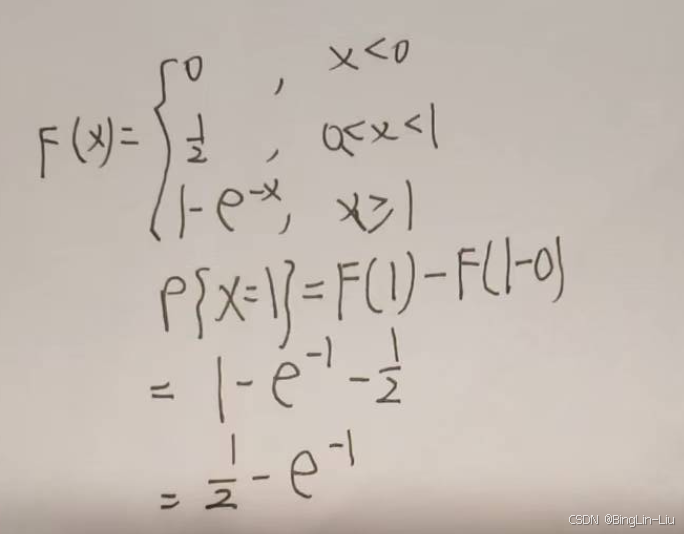 F(x)= { 0 , x<0
1/2 , 0<x<1
1-e^{-x}, x≥1
P{X=1}=F(1)-F(1-0)
= 1-e^{-1}-1/2
= 1/2-e^{-1}
CSDN @BingLin-Liu